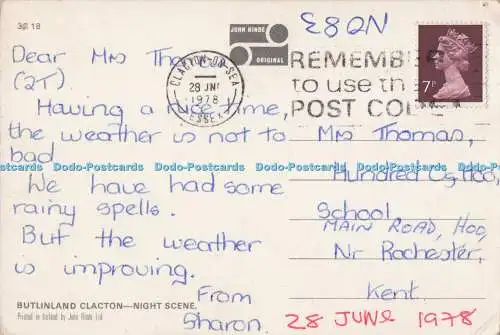 3C 18
Dear Mrs Thomas
(2T).
Having a nice time,
the weather is not to
bad
We have had some
rainy spells.
But the weather
is improving.
From
Sharon
BUTLINLAND CLACTON—NIGHT SCENE.
Printed in Ireland by John Hinde Ltd
JOHN HINDE
ORIGINAL
CLACTON-ON-SEA
28 JNE
1978
ESSEX
REMEMBER
to use the
POST CODE
£8QN
7P
Mrs Thomas,
Hundred
School
MAIN ROAD, HOO,
Nr Rochester,
Kent.
28 JUNE 1978
Dodo-Postcards Dodo-Postcards Dodo-Postcards Dodo-Postcards Dodo-Postcards